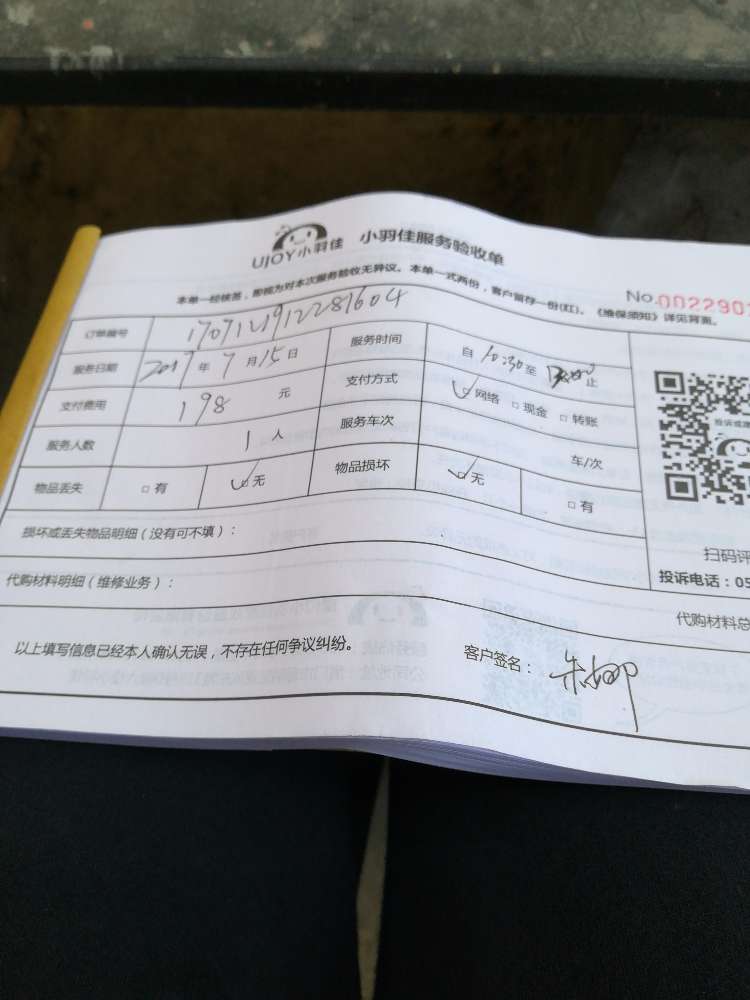 UJOY小羽佳 小羽佳服务验收单
本单一经核签，即视为对本次服务验收无异议。本单一式两份，客户留存一份(红)。《维保须知》详见背面。
No.0022907
订单编号 1707121912281604
服务日期 2017年7月15日 服务时间 自10:30至 止
支付费用 198 元 支付方式 网络 □现金 □转账
服务人数 1人 服务车次 车/次
物品丢失 □有 无 物品损坏 无 □有
损坏或丢失物品明细（没有可不填）：
扫码评
投诉电话：05
代购材料明细（维修业务）：
代购材料总
以上填写信息已经本人确认无误，不存在任何争议纠纷。 客户签名：